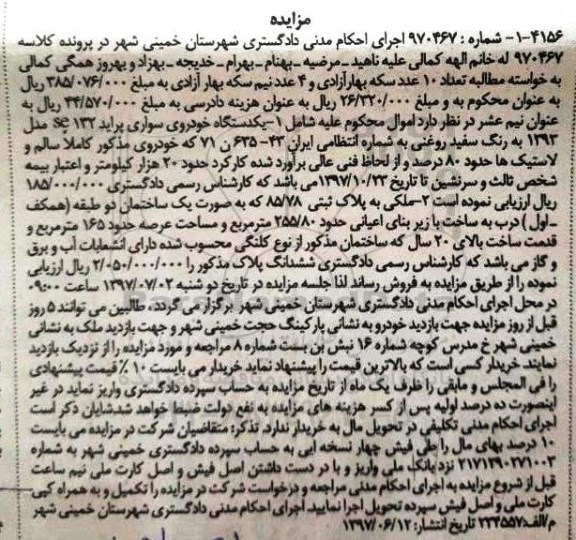 مزایده
۱-۴۱۵۶- شماره : ۹۷۰۴۶۷ اجرای احکام مدنی دادگستری شهرستان خمینی شهر در پرونده کلاسه
۹۷۰۴۶۷ له خانم الهه کمالی علیه ناهید ـ مرضیه ـ بهنام ـ بهرام ـ خدیجه ـ بهزاد و بهروز همگی کمالی
به خواسته مطالبه تعداد ۱۰ عدد سکه بهارآزادی و ۴ عدد نیم سکه بهار آزادی به مبلغ ۳۸۵/۰۷۶/۰۰۰ ریال
به عنوان محکوم به و مبلغ ۲۶/۳۲۰/۰۰۰ ریال به عنوان هزینه دادرسی به مبلغ ۴۴/۵۷۰/۰۰۰ ریال به
عنوان نیم عشر در نظر دارد اموال محکوم علیه شامل ۱-یکدستگاه خودروی سواری پراید ۱۳۲ se مدل
۱۳۹۳ به رنگ سفید روغنی به شماره انتظامی ایران ۴۳- ۶۳۵ ن ۷۱ که خودروی مذکور کاملا سالم و
لاستیک ها حدود ۸۰ درصد و از لحاظ فنی عالی برآورد شده کارکرد حدود ۲۰ هزار کیلومتر و اعتبار بیمه
شخص ثالث و سرنشین تا تاریخ ۱۳۹۷/۱۰/۲۳ می باشد که کارشناس رسمی دادگستری ۱۸۵/۰۰۰/۰۰۰
ریال ارزیابی نموده است ۲-ملکی به پلاک ثبتی ۸۵/۷۸ که به صورت یک ساختمان دو طبقه (همکف
ـ اول ) درب به ساخت با زیر بنای اعیانی حدود ۲۵۵/۸۰ مترمربع و مساحت عرصه حدود ۱۶۵ مترمربع و
قدمت ساخت بالای ۲۰ سال که ساختمان مذکور از نوع کلنگی محسوب شده دارای انشعابات آب و برق
و گاز می باشد که کارشناس رسمی دادگستری ششدانگ پلاک مذکور را ۲/۰۵۰/۰۰۰/۰۰۰ ریال ارزیابی
نموده را از طریق مزایده به فروش رساند لذا جلسه مزایده در تاریخ دو شنبه ۱۳۹۷/۰۷/۰۲ ساعت ۰۹:۰۰
در محل اجرای احکام مدنی دادگستری شهرستان خمینی شهر برگزار می گردد. طالبین می توانند ۵ روز
قبل از روز مزایده جهت بازدید خودرو به نشانی پارکینگ حجت خمینی شهر و جهت بازدید ملک به نشانی
خمینی شهر خ مدرس کوچه شماره ۱۶ نبش بن بست شماره ۸ مراجعه و مورد مزایده را از نزدیک بازدید
نمایند. خریدار کسی است که بالاترین قیمت را پیشنهاد نماید خریدار می بایست ۱۰ ٪ قیمت پیشنهادی
را فی المجلس و مابقی را ظرف یک ماه از تاریخ مزایده به حساب سپرده دادگستری واریز نماید در غیر
اینصورت ده درصد اولیه پس از کسر هزینه های مزایده به نفع دولت ضبط خواهد شد.شایان ذکر است
اجرای احکام مدنی تکلیفی در تحویل مال به خریدار ندارد. تذکر: متقاضیان شرکت در مزایده می بایست
۱۰ درصد بهای مال را طی فیش چهار نسخه ایی به حساب سپرده دادگستری خمینی شهر به شماره
۲۱۷۱۲۹۰۲۷۱۰۰۳ نزد بانک ملی واریز و با در دست داشتن اصل فیش و اصل کارت ملی نیم ساعت
قبل از شروع مزایده به اجرای احکام مدنی مراجعه و درخواست شرکت در مزایده را تکمیل و به همراه کپی
کارت ملی و اصل فیش سپرده تحویل اجرا نمایید. اجرای احکام مدنی دادگستری شهرستان خمینی شهر
م/الف:۲۳۴۵۵۷ تاریخ انتشار: ۱۳۹۷/۰۶/۱۲